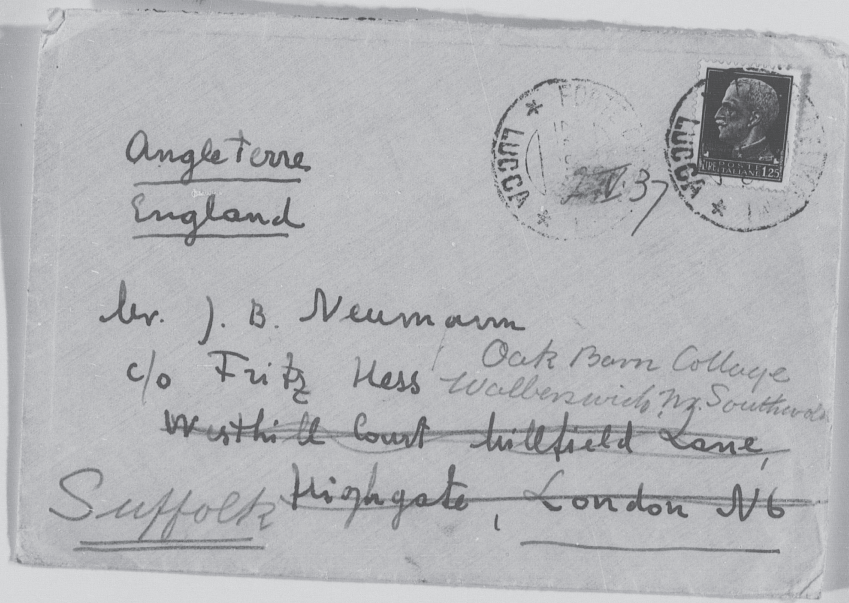 Angleterre
England
LUCCA
LUCCA
POSTE ITALIANE 1,25
37
Mr. J. B. Neumann
c/o Fritz Hess
Oak Barn Cottage
Walberswich, Nr. Southwold
Westhill Court Millfield Lane,
Highgate, London N6
Suffolk